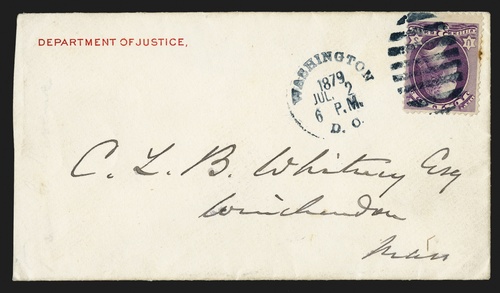 DEPARTMENT OF JUSTICE,
WASHINGTON
1879
JUL. 2
6 P.M.
D. C.
C. L. B. Whitney Esq
Winchendon
Mass